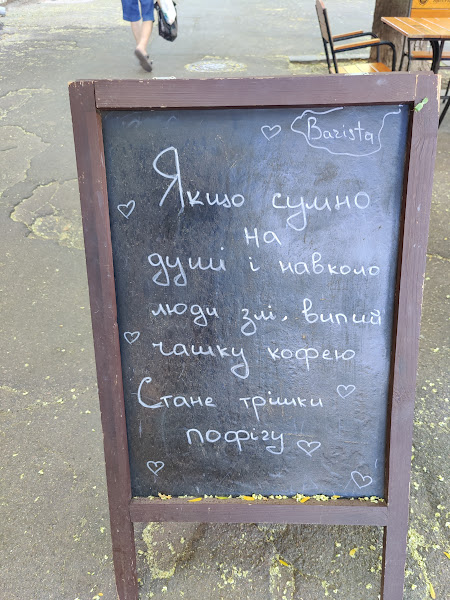 Barista
Якщо сумно
на
душі і навколо
люди злі, випий
чашку кофею
Стане трішки
пофігу